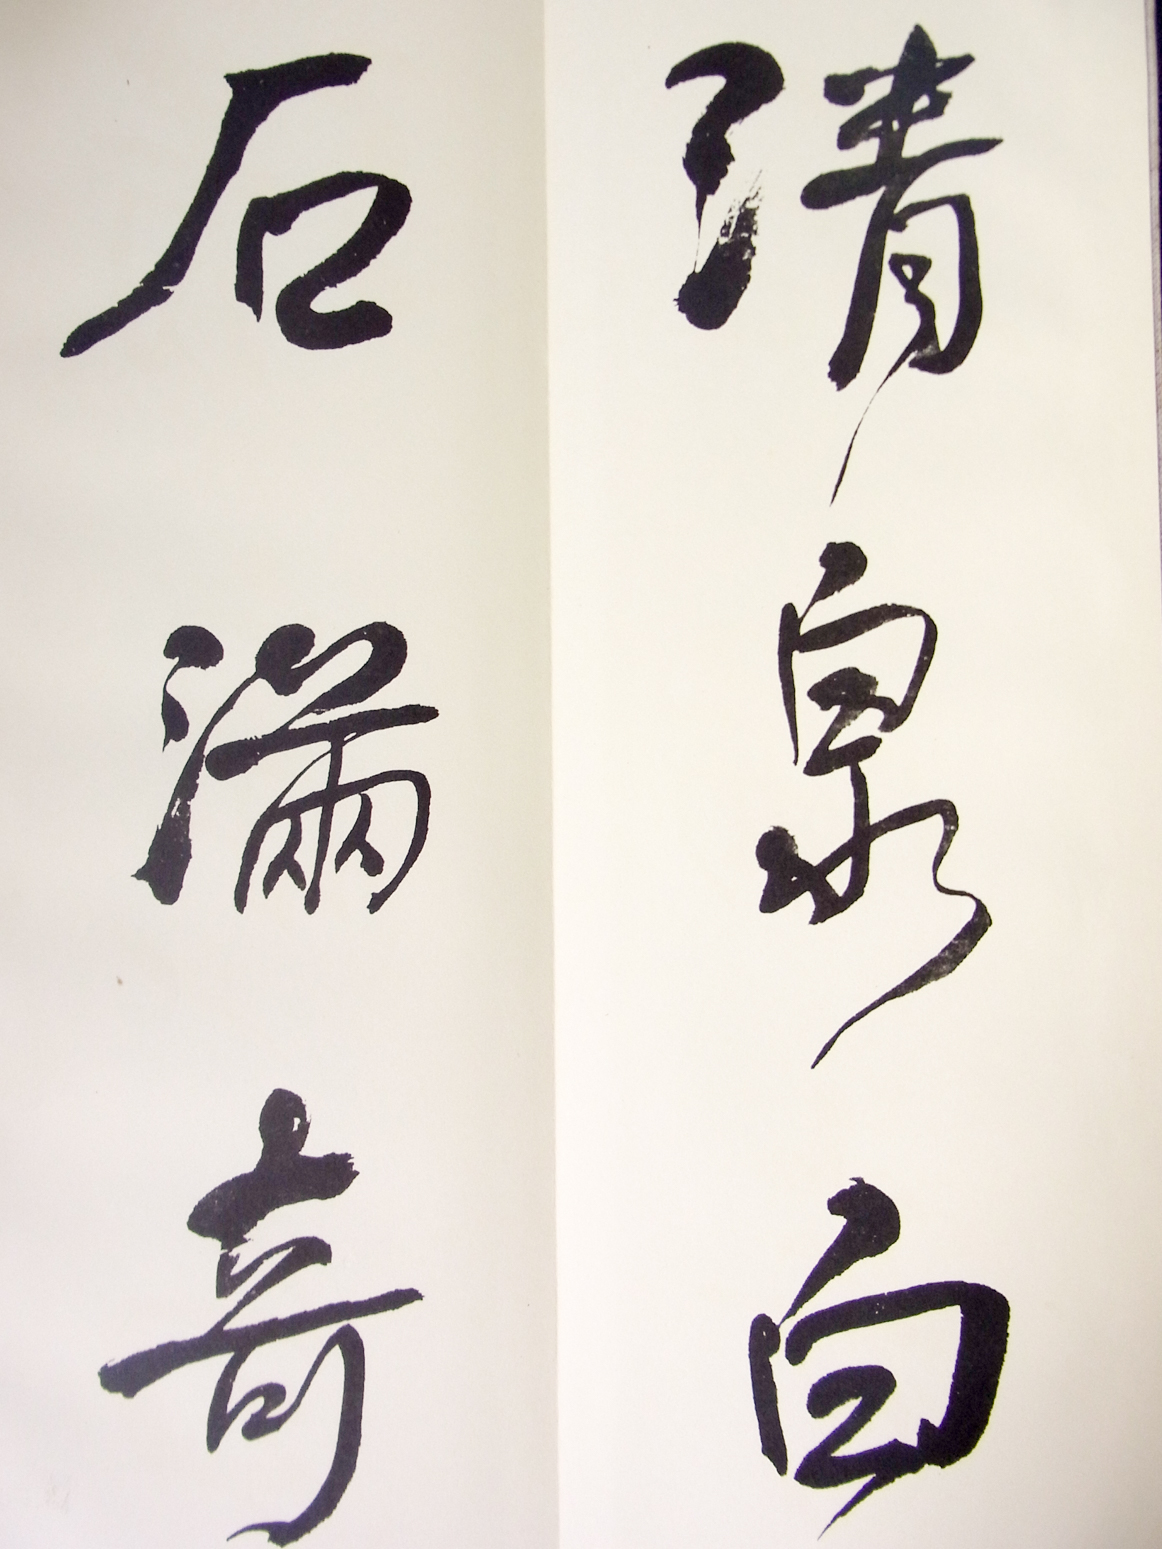 清泉白
石滿奇